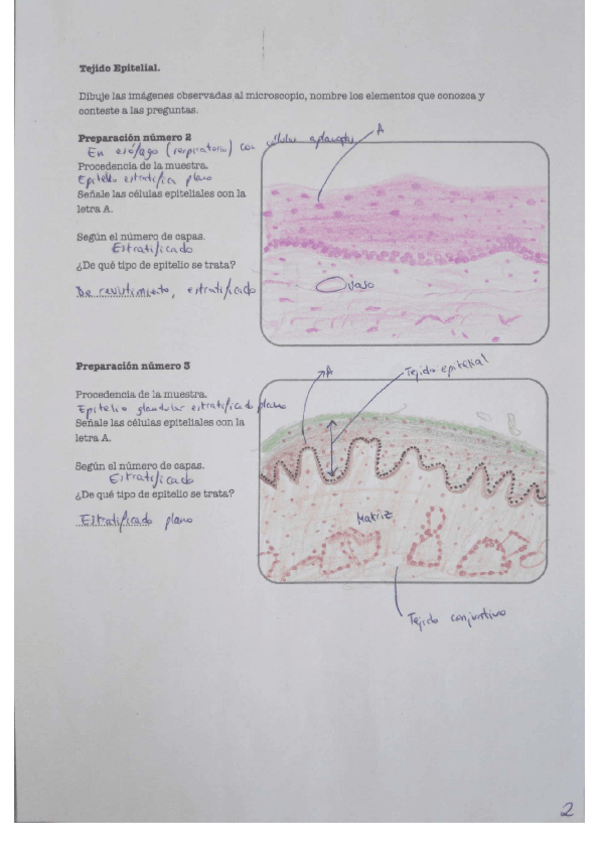 Tejido Epitelial.
Dibuje las imágenes observadas al microscopio, nombre los elementos que conozca y
conteste a las preguntas.
Preparación número 2
En esófago (respiratorio) con células aplanadas
A
Procedencia de la muestra.
Epitelio estratificado plano
Señale las células epiteliales con la
letra A.
Según el número de capas.
Estratificado
¿De qué tipo de epitelio se trata?
De revestimiento, estratificado
Vaso
Preparación número 3
A
Tejido epitelial
Procedencia de la muestra.
Epitelio glandular estratificado plano
Señale las células epiteliales con la
letra A.
Según el número de capas.
Estratificado
¿De qué tipo de epitelio se trata?
Estratificado plano
Matriz
Tejido conjuntivo
2